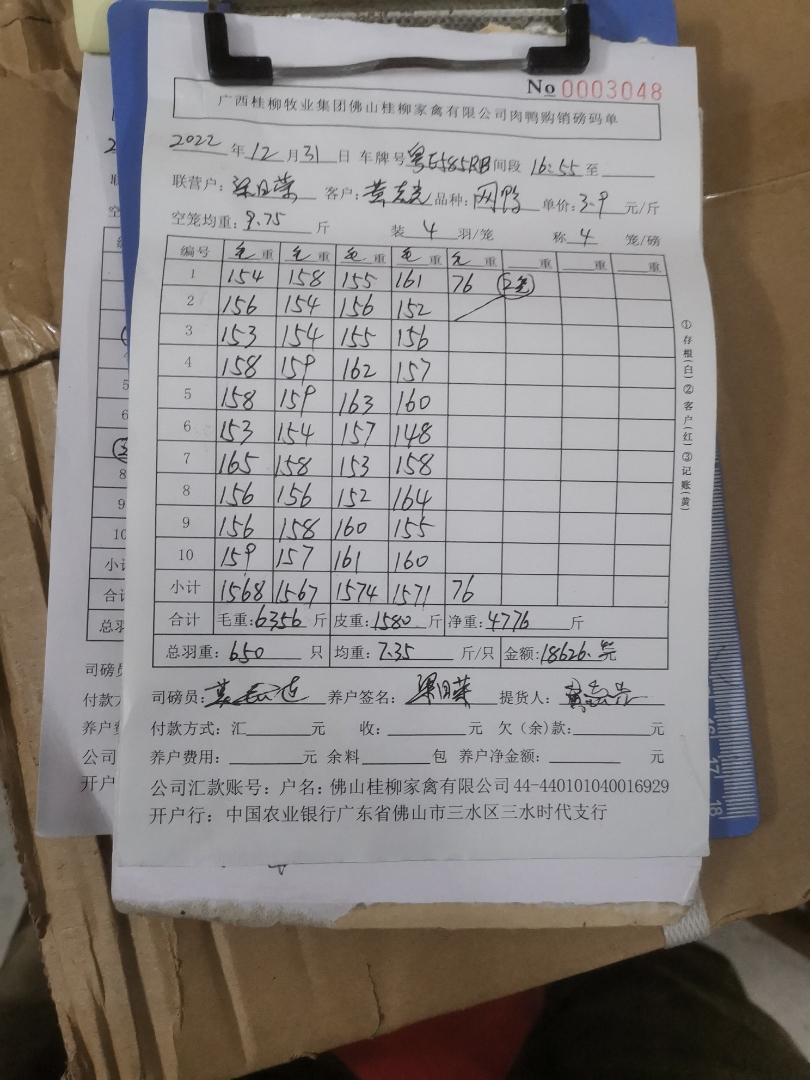 No 0003048
广西桂柳牧业集团佛山桂柳家禽有限公司肉鸭购销磅码单
2022 年 12 月 31 日 车牌号 粤E585RB 间段 16:55 至
联营户: 梁日荣 客户: 黄志亮 品种: 网鸭 单价: 3.9 元/斤
空笼均重: 9.75 斤 装 4 羽/笼 称 4 笼/磅
编号 毛重 毛重 毛重 毛重 毛重 重 重 重
1 154 158 155 161 76 2笼
2 156 154 156 152
3 153 154 155 156
4 158 159 162 157
5 158 159 163 160
6 153 154 157 148
7 165 158 153 158
8 156 156 152 164
9 156 158 160 155
10 159 157 161 160
小计 1568 1567 1574 1571 76
合计 毛重: 6356 斤 皮重: 1580 斤 净重: 4776 斤
总羽重: 650 只 均重: 7.35 斤/只 金额: 18626. 元
司磅员: 养户签名: 梁日荣 提货人: 黄志亮
付款方式: 汇 元 收: 元 欠(余)款: 元
养户费用: 元 余料 包 养户净金额: 元
公司汇款账号: 户名: 佛山桂柳家禽有限公司 44-440101040016929
开户行: 中国农业银行广东省佛山市三水区三水时代支行
①存根(白)②客户(红)③记账(黄)